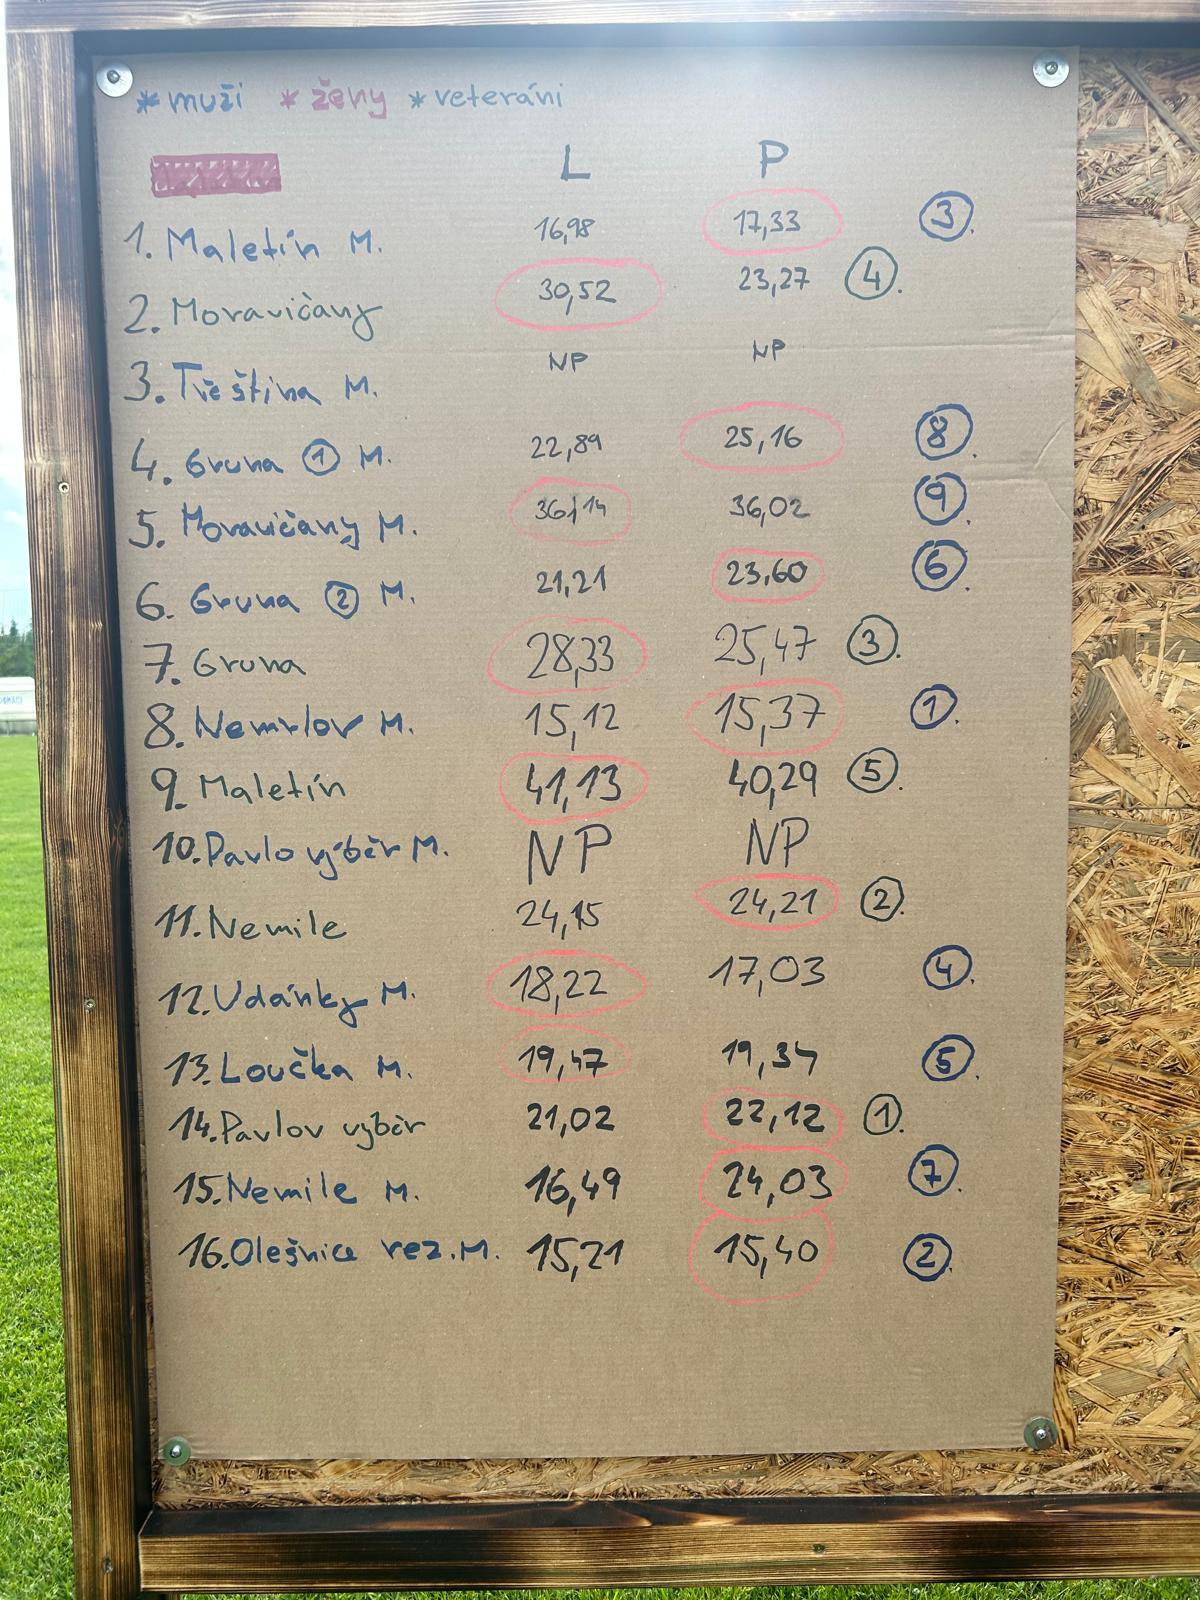 * muži * ženy * veteráni
L P
1. Maletín M. 16,98 17,33 3.
2. Moravičany 30,52 23,27 4.
3. Třeština M. NP NP
4. Gruna 1 M. 22,89 25,16 8.
5. Moravičany M. 36,14 36,02 9.
6. Gruna 2 M. 21,21 23,60 6.
7. Gruna 28,33 25,47 3.
8. Nemrlov M. 15,12 15,37 1.
9. Maletín 41,13 40,29 5.
10. Pavlo výběr M. NP NP
11. Nemile 24,15 24,21 2.
12. Udánky M. 18,22 17,03 4.
13. Loučka M. 19,47 19,34 5.
14. Pavlov výběr 21,02 22,12 1.
15. Nemile M. 16,49 24,03 7.
16. Olešnice rez. M. 15,21 15,40 2.